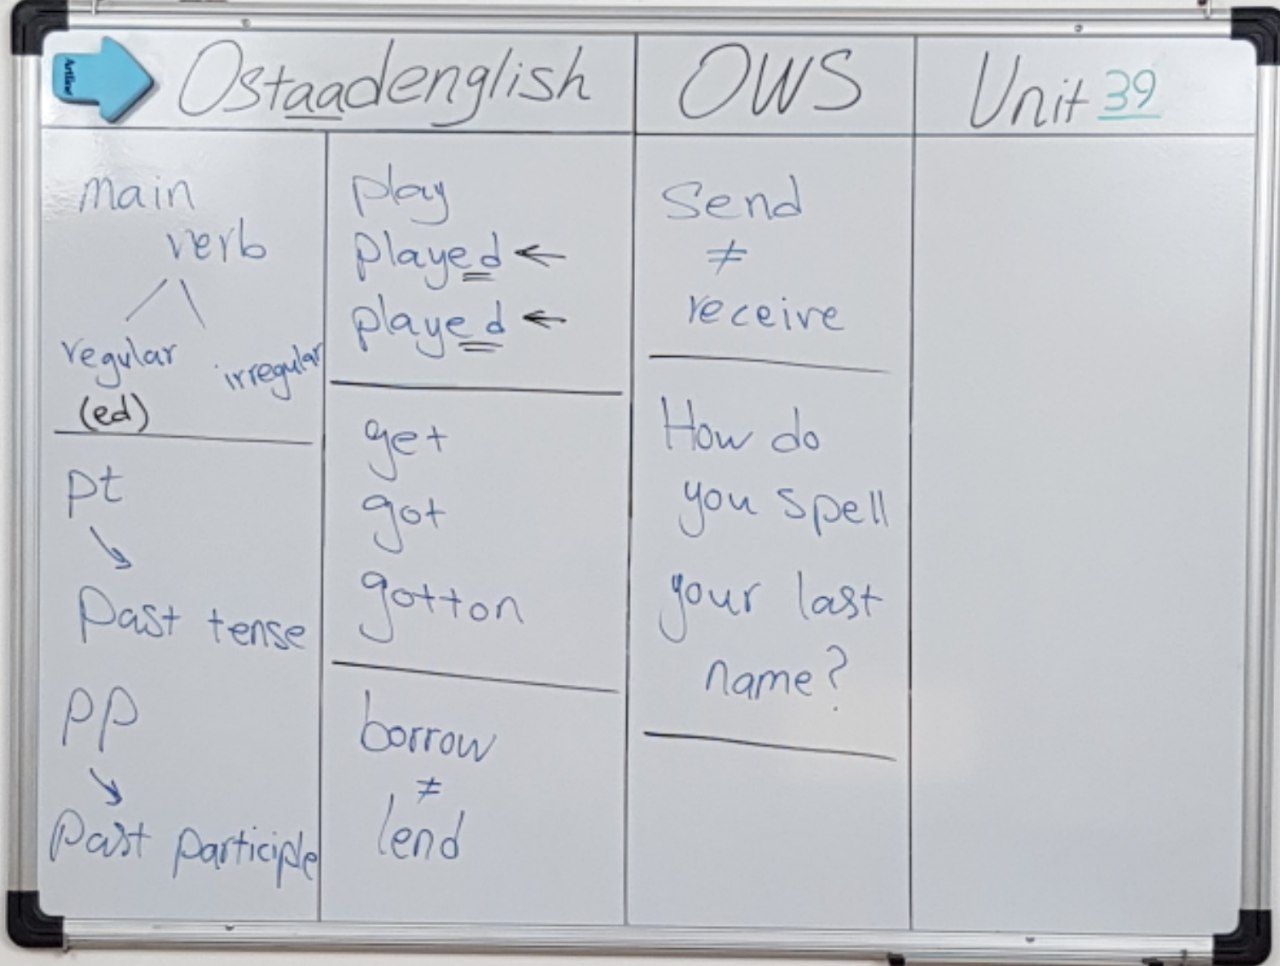 Artline
Ostaadenglish
OWS
Unit 39
main
verb
regular
irregular
(ed)
pt
Past tense
pp
Past participle
play
played ←
played ←
get
got
gotton
borrow
≠
lend
Send
≠
receive
How do
you spell
your last
name?